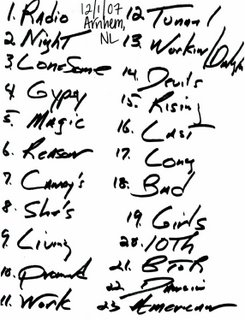 1. Radio
2. Night
3. LoneSome
4. Gypsy
5. Magic
6. Reason
7. Candy's
8. She's
9. Living
10. Promised
11. Work
12/1/07
Arnhem,
NL
12. Tunnel
13. Workin/Dayligh
14. Devils
15. Rising
16. Last
17. Long
18. Bad
19. Girls
20. 10th
21. BTOR
22. Dancin
23. American